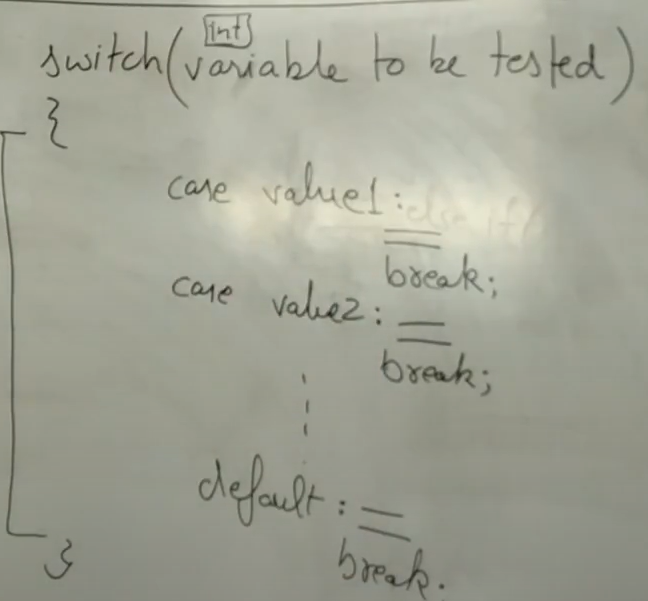 int
switch(variable to be tested)
{
case value1:
break;
case value2:
break;
default:
break.
}